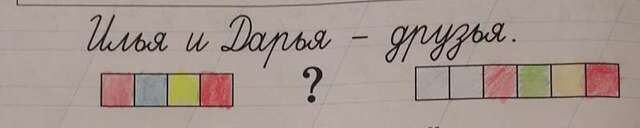 Илья и Дарья – друзья.
?